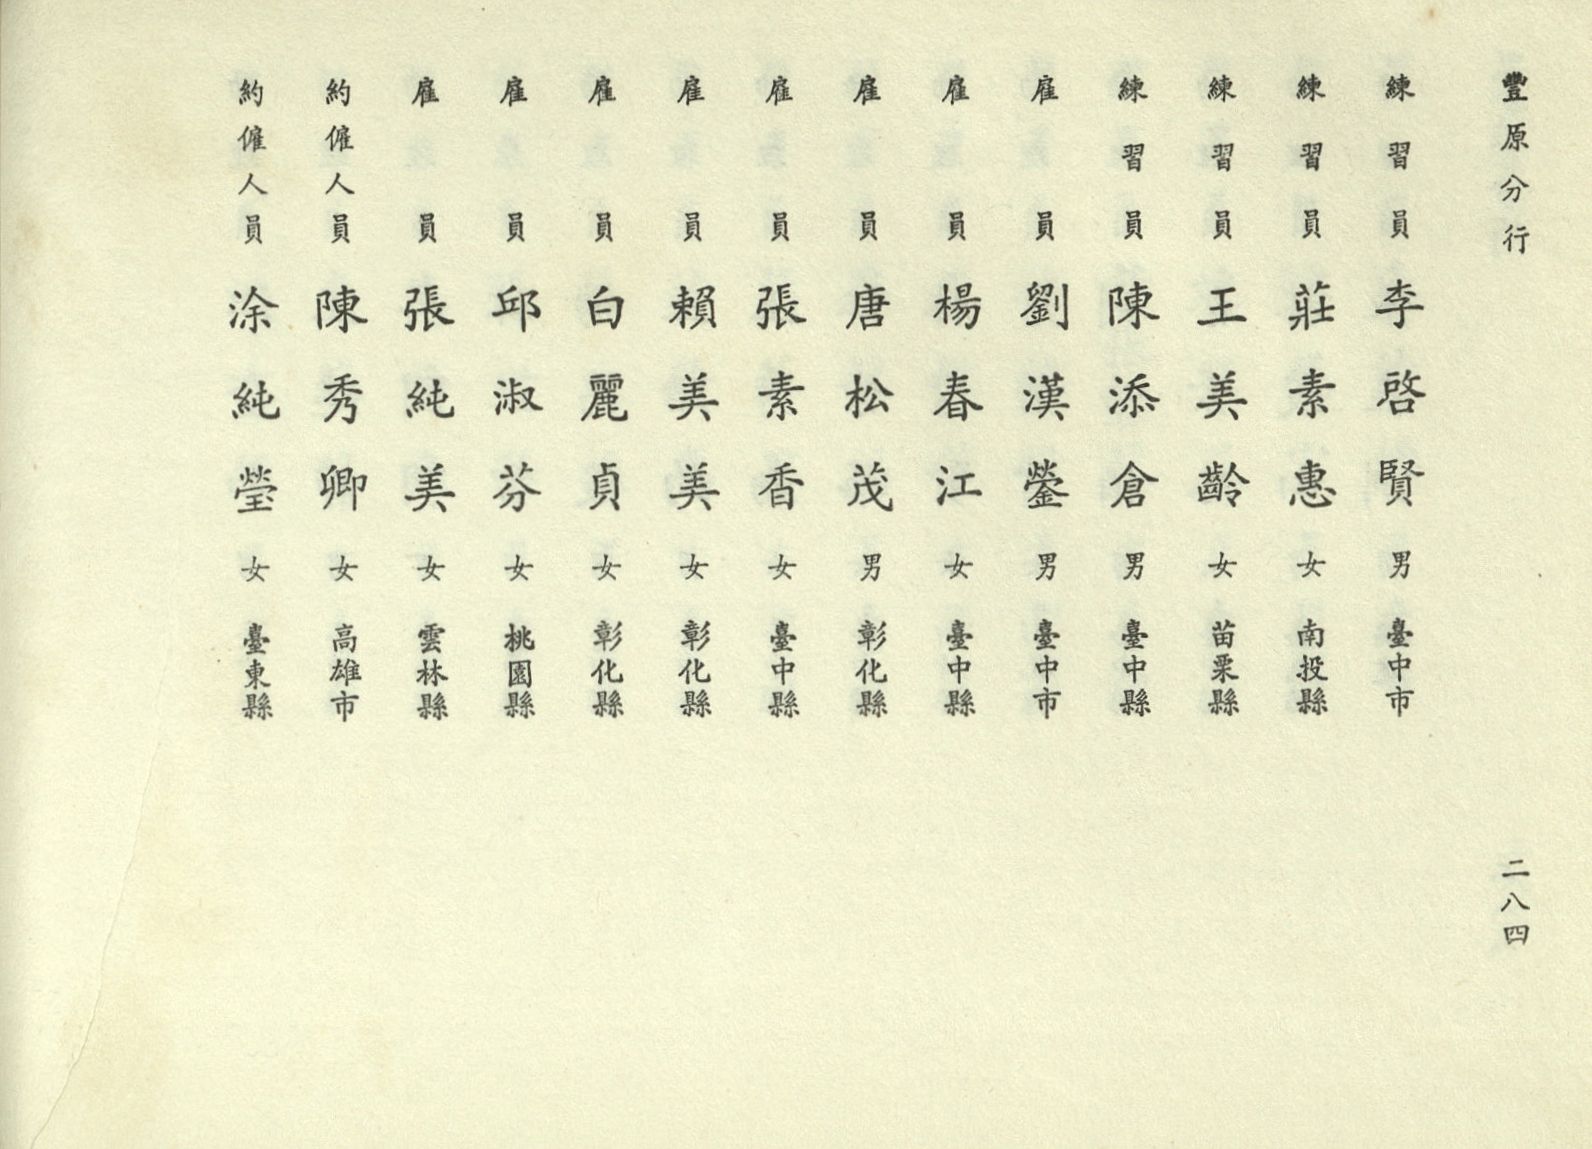 豐原分行
二八四
練習員 李啓賢 男 臺中市
練習員 莊素惠 女 南投縣
練習員 王美齡 女 苗栗縣
練習員 陳添倉 男 臺中縣
雇員 劉漢鎣 男 臺中市
雇員 楊春江 女 臺中縣
雇員 唐松茂 男 彰化縣
雇員 張素香 女 臺中縣
雇員 賴美美 女 彰化縣
雇員 白麗貞 女 彰化縣
雇員 邱淑芬 女 桃園縣
雇員 張純美 女 雲林縣
約僱人員 陳秀卿 女 高雄市
約僱人員 涂純瑩 女 臺東縣